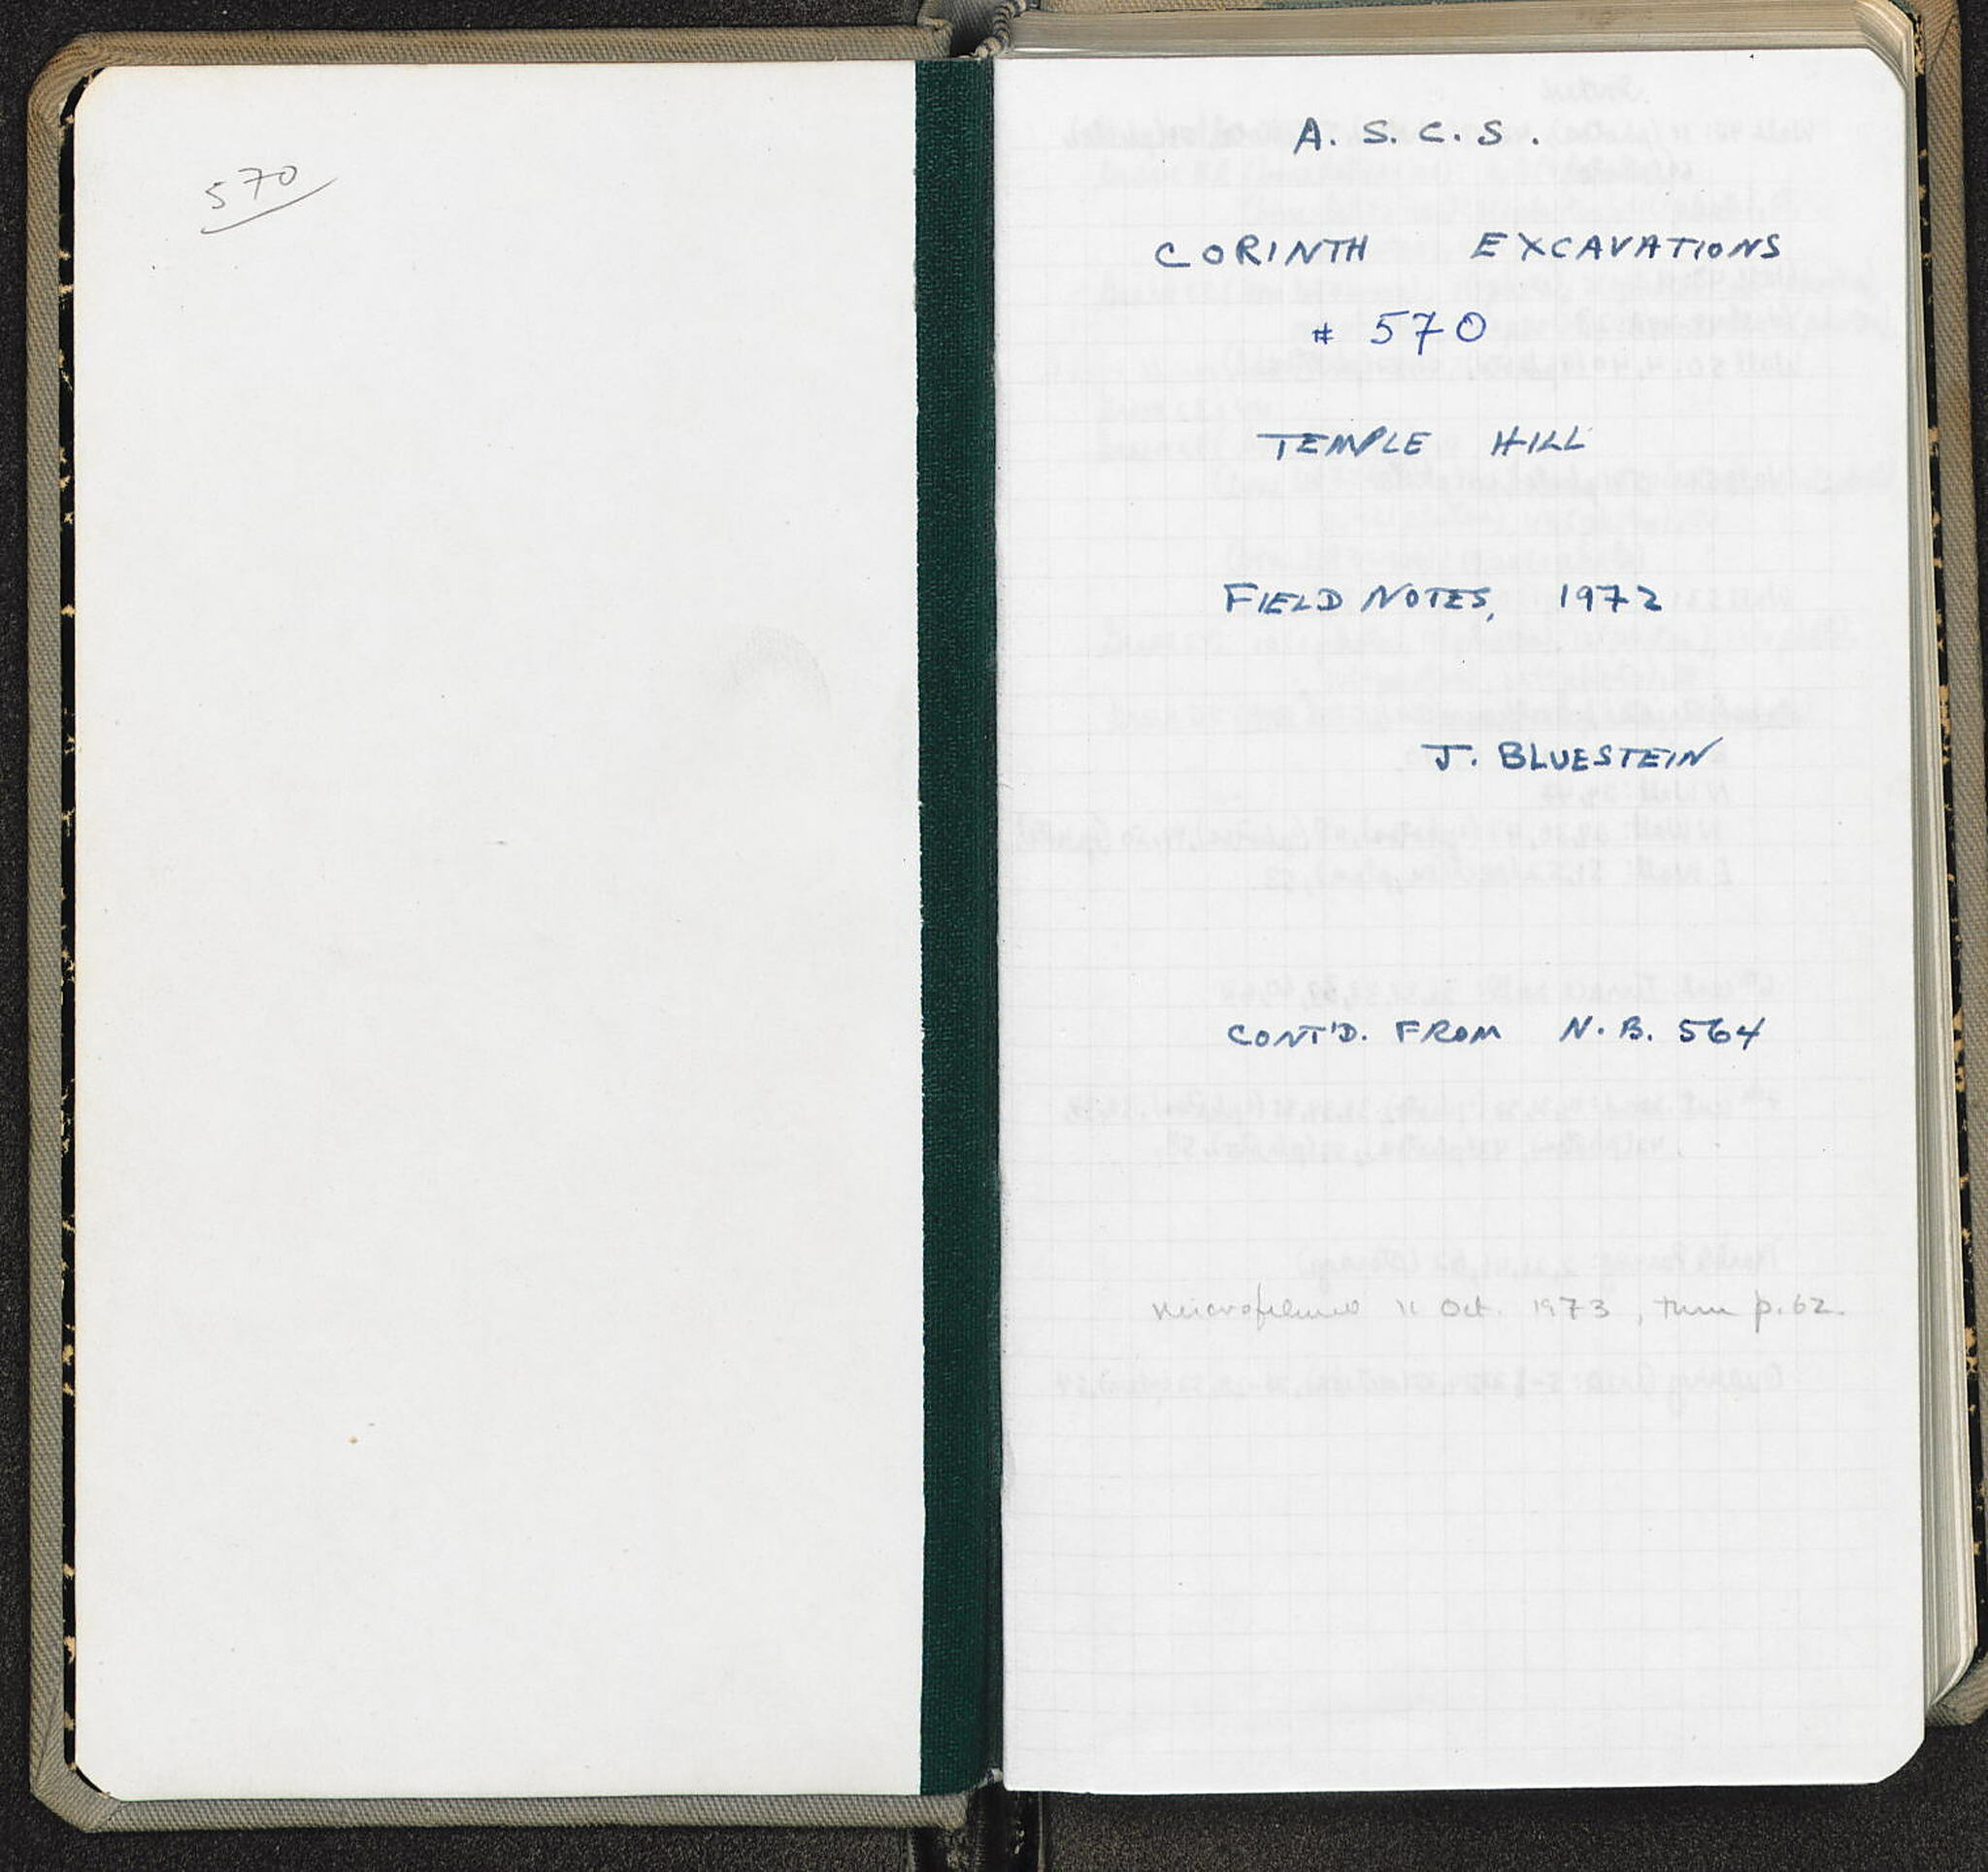 570
A. S. C. S.
CORINTH EXCAVATIONS
# 570
TEMPLE HILL
FIELD NOTES, 1972
J. BLUESTEIN
CONT'D. FROM N.B. 564
Microfilmed 11 Oct. 1973, thru p. 62.